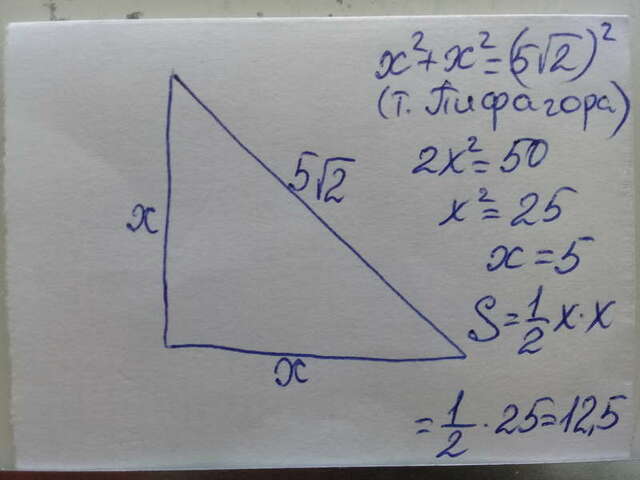 x²+x²=(5√2)²
(т. Пифагора)
2x²=50
x²=25
x=5
S=1/2 x·x
=1/2·25=12,5
5√2
x
x